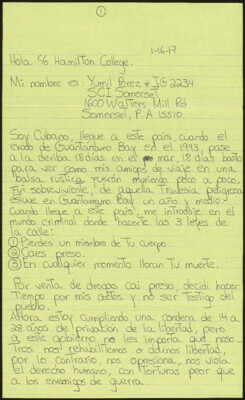 ①
1-16-17
Hola c/o Hamilton College.
Mi nombre es: Yumil Perez # JG 2234
SCI Somerset
1600 Walters Mill Rd
Somerset, P.A 15510.
Soy Cubano, llegue a este pais, cuando el
exodo de Guantanamo Bay en el 1993, pase
a la deriba 18 dias en el mar, 18 dias basto
para ver como mis amigos de viaje en una
balsa rustica fueron muriendo poco a poco.
Fui sobreviviente, de aquella Travesia peligrosa
estuve en Guantanamo Bay un año y medio.
Cuando llegue a este pais, me introduje en el
mundo criminal donde hacerte las 3 leyes de
la calle:
① Pierdes un miembro de Tu cuerpo
② Caes preso.
③ En cualquier momento lloran Tu muerte.
Por venta de drogas cai preso, decidi hacer
Tiempo por mis actos y no ser Testigo del
pueblo.
Ahora estoy cumpliendo una condena de 14 a
28 años de privacion de la libertad, pero
a este gobierno no les importa que noso-
Tros nos rehabilitemos o darnos libertad,
por lo contrario, nos opresiona, nos viola
el derecho humano, con Torturas peor que
a los enemigos de guerra.